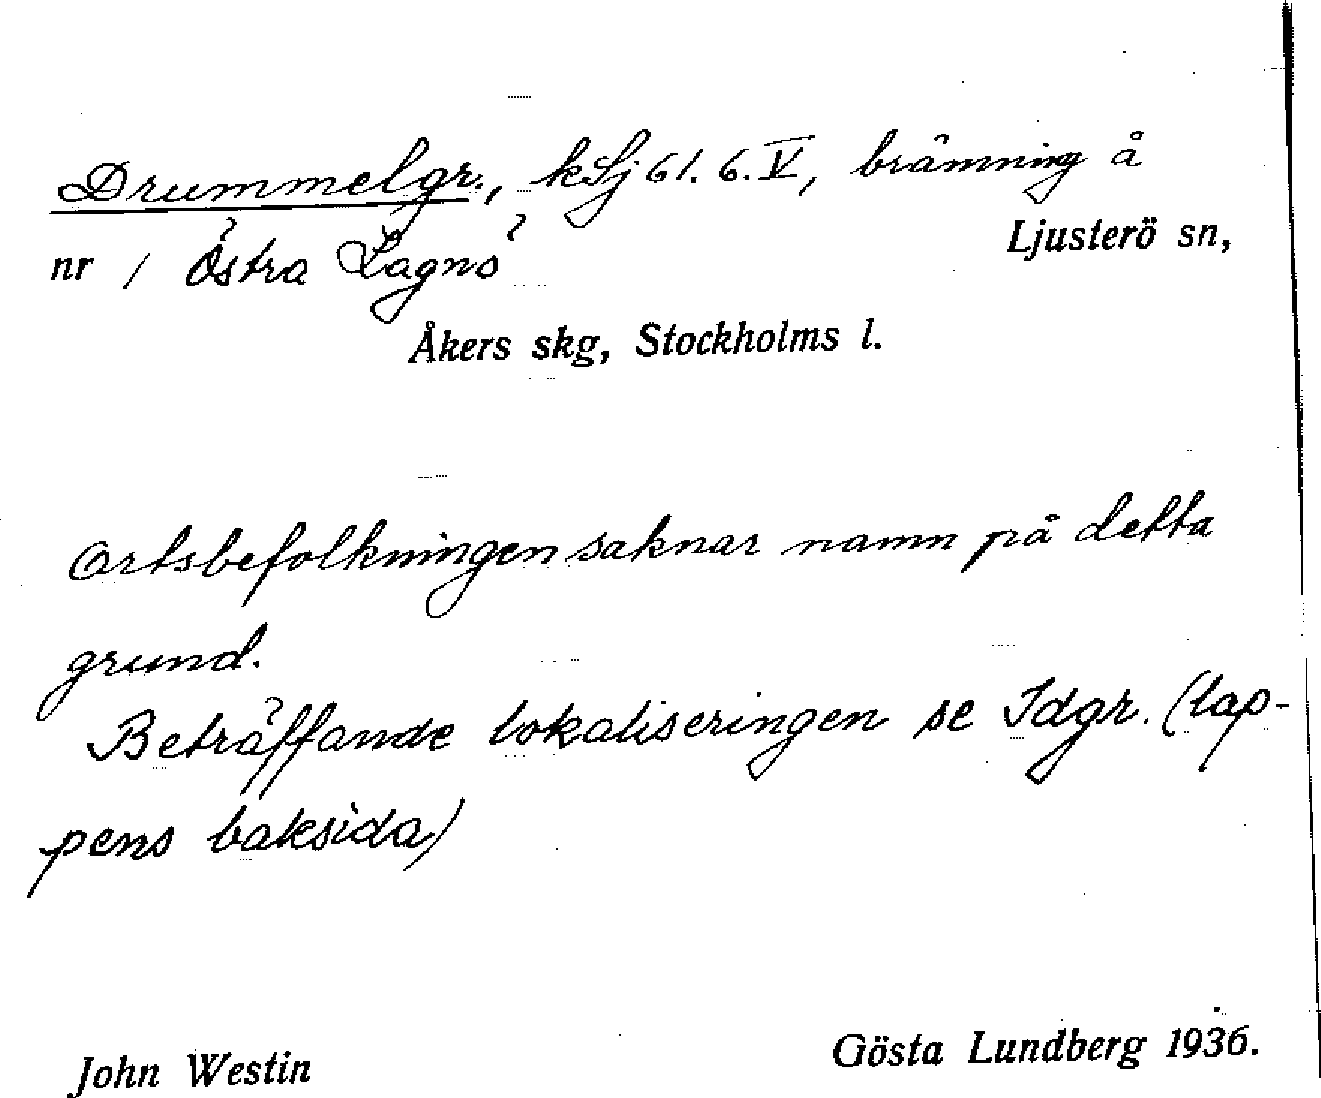 Drummelgr., kSj 61. 6. V, brämning å
nr 1 Östra Lagnö Ljusterö sn,
Åkers skg, Stockholms l.
Ortsbefolkningen saknar namn på detta
grund.
Beträffande lokaliseringen se Idgr. (lap-
pens baksida)
John Westin Gösta Lundberg 1936.